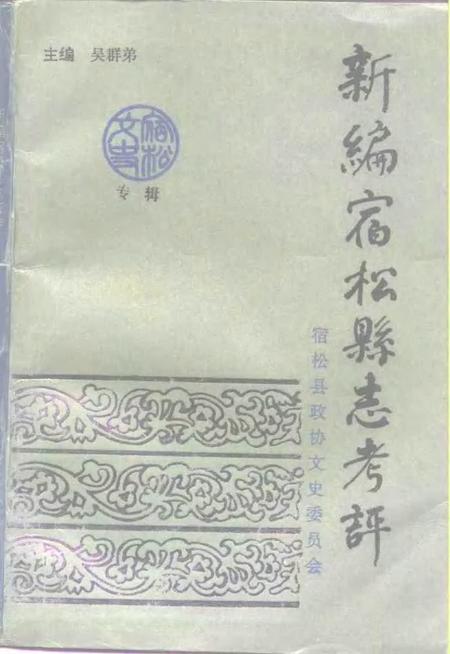 主编 吴群弟
宿松文史
专辑
新編宿松縣志考評
宿松县政协文史委员会